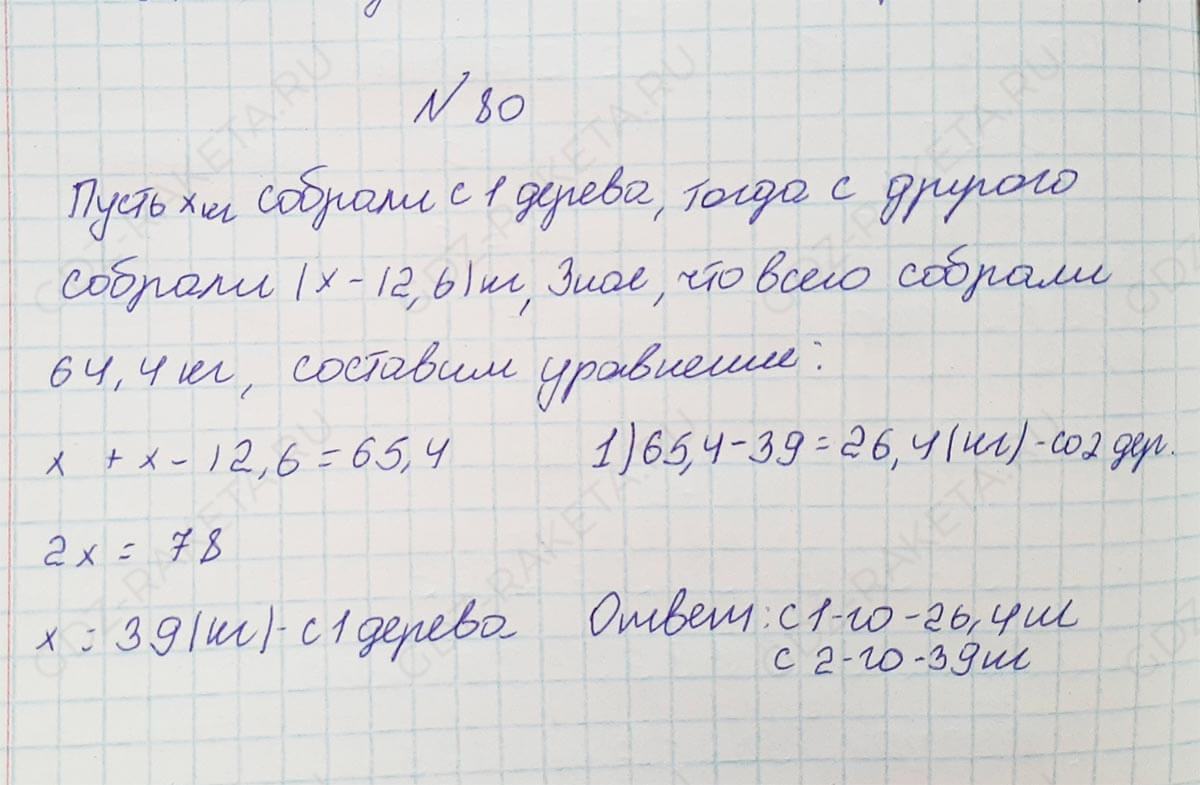 N 80
Пусть x кг собрали с 1 дерева, тогда с другого
собрали (x - 12,6) кг, Зная, что всего собрали
64,4 кг, составим уравнение:
x + x - 12,6 = 65,4
1) 65,4 - 39 = 26,4 (кг) - со 2 дер.
2x = 78
x = 39 (кг) - с 1 дерева
Ответ: с 1-го - 26,4 кг
с 2-го - 39 кг
GDZ-RAKETA.RU